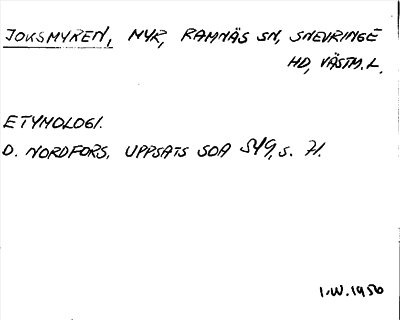 JOKSMYREN, MYR, RAMNÄS SN, SNEVRINGE
HD, VÄSTM.L.
ETYMOLOGI.
D. NORDFORS, UPPSATS SOA 549, s. 71.
I.W. 1956